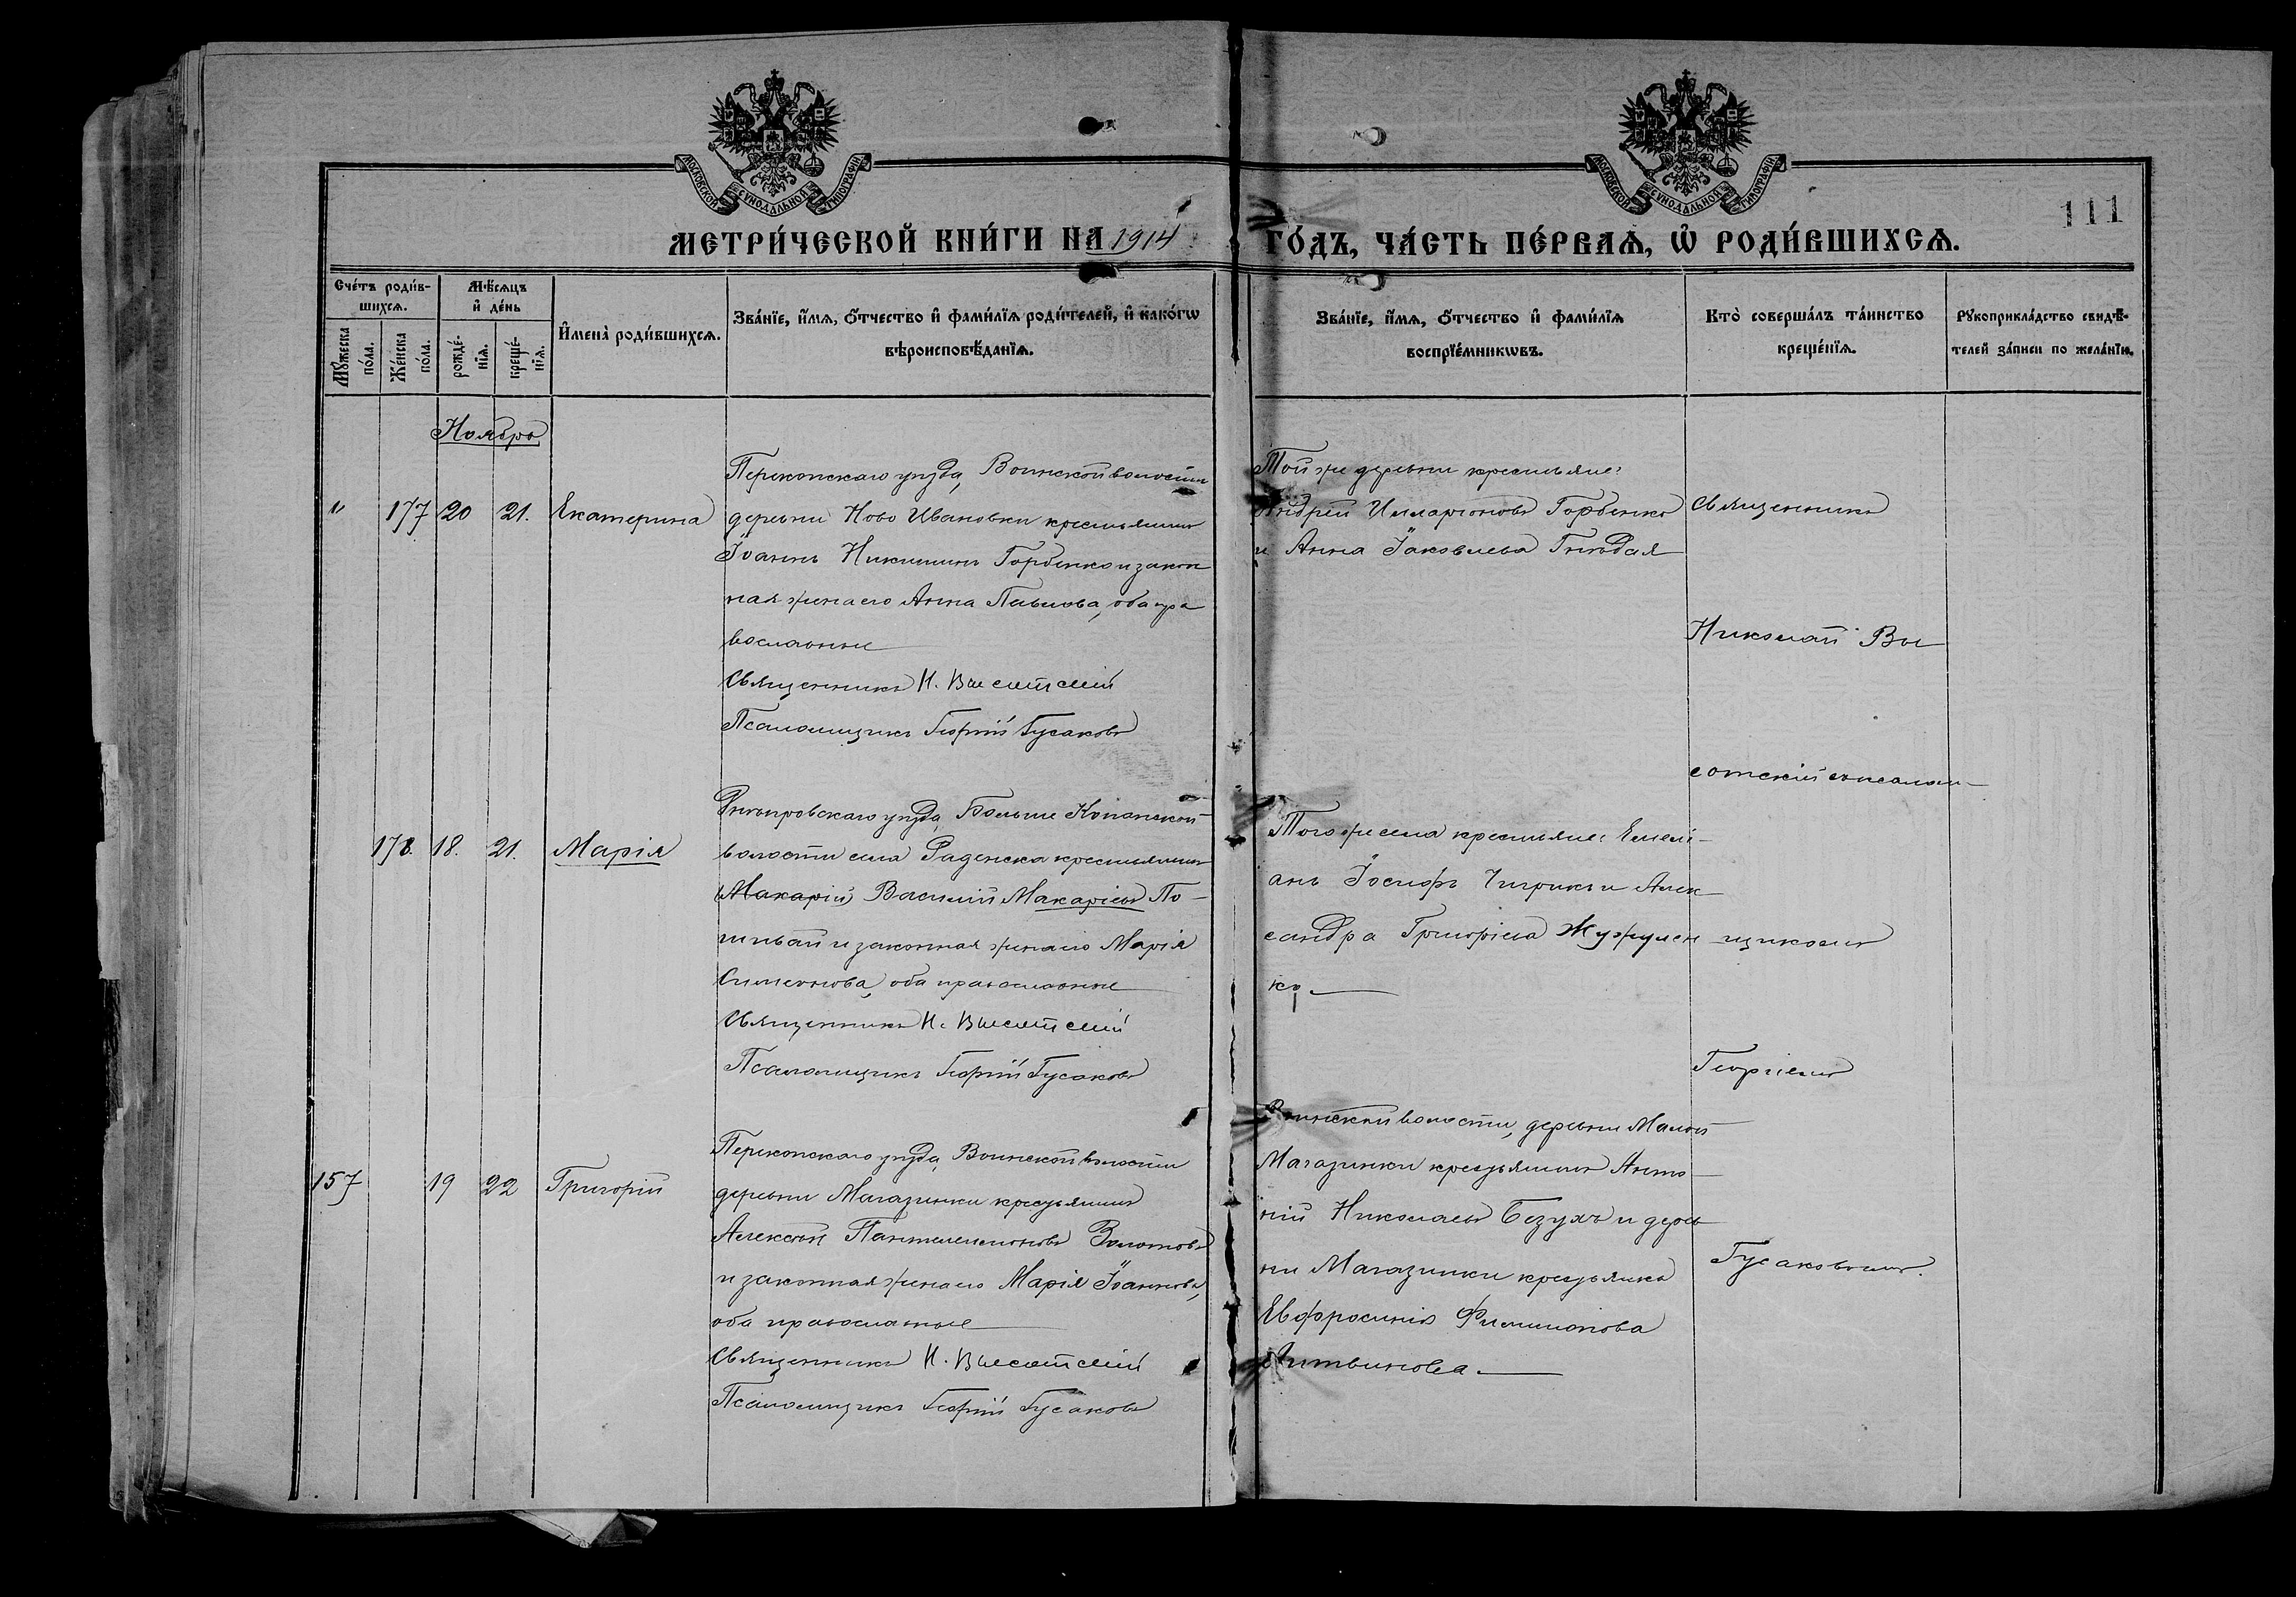 МОСКОВСКОЙ СѴНОДАЛЬНОЙ ТИПОГРАФІИ
МОСКОВСКОЙ СѴНОДАЛЬНОЙ ТИПОГРАФІИ
111
МЕТРИ́ЧЕСКОЙ КНИ́ГИ НА 1914 ГО́ДЪ, ЧА́СТЬ ПЕ́РВАѦ, Ѽ РОДИ́ВШИХСѦ.
Сче́тъ роди́в-
шихсѧ.
Мꙋ́жеска по́ла.
Же́нска по́ла.
Мѣ́сѧцъ
и҆ де́нь
рожде́-
нїѧ.
креще́-
нїѧ.
И҆мена̀ роди́вшихсѧ.
Зва́нїе, и҆́мѧ, ѻ҆́тчество и҆ фами́лїѧ роди́телей, и҆ како́гѡ
вѣроисповѣ́данїѧ.
Зва́нїе, и҆́мѧ, ѻ҆́тчество и҆ фами́лїѧ
воспрїе́мникѡвъ.
Кто̀ соверша́лъ та́инство
креще́нїѧ.
Рꙋкоприкла́дство свидѣ́-
телей за́писи по жела́нїю.
Ноябрь
" 177 20 21. Екатерина
Перекопскаго уѣзда, Воинской волости
деревни Ново Ивановки крестьянинъ
Іоаннъ Никитинъ Горбенко и закон
ная жена его Анна Павлова, оба пра
вославные
Священникъ Н. Высотскій
Псаломщикъ Георгій Гусаковъ
Той же деревни крестьяне:
Андрей Илларіоновъ Горбенко
и Анна Іаковлева Гнѣдая
178. 18. 21. Марія
Днѣпровскаго уѣзда, Больше Копанской
волости села Раденска крестьянинъ
(Макарій) Василій Макаріевъ По-
шивай и законная жена его Марія
Симеонова, оба православные
Священникъ Н. Высотскій
Псаломщикъ Георгій Гусаковъ
Того же села крестьяне: Емели-
анъ Іосифъ Чигрикъ и Алек-
сандра Григоріева Жужулен
ко
157 19 22 Григорій
Перекопскаго уѣзда, Воинской волости
деревни Магазинки крестьянинъ
Алексѣй Пантелеимоновъ Золотовъ
и законная жена его Марія Іоаннова,
оба православные
Священникъ Н. Высотскій
Псаломщикъ Георгій Гусаковъ
Воинской волости, деревни Малой
Магазинки крестьянинъ Анто-
ній Николаевъ Безухъ и дерев
ни Магазинки крестьянка
Евфросинія Филимонова
Литвинова.
Священникъ
Николай Вы
сотскій съ псалом-
щикомъ
Георгіемъ
Гусаковымъ.